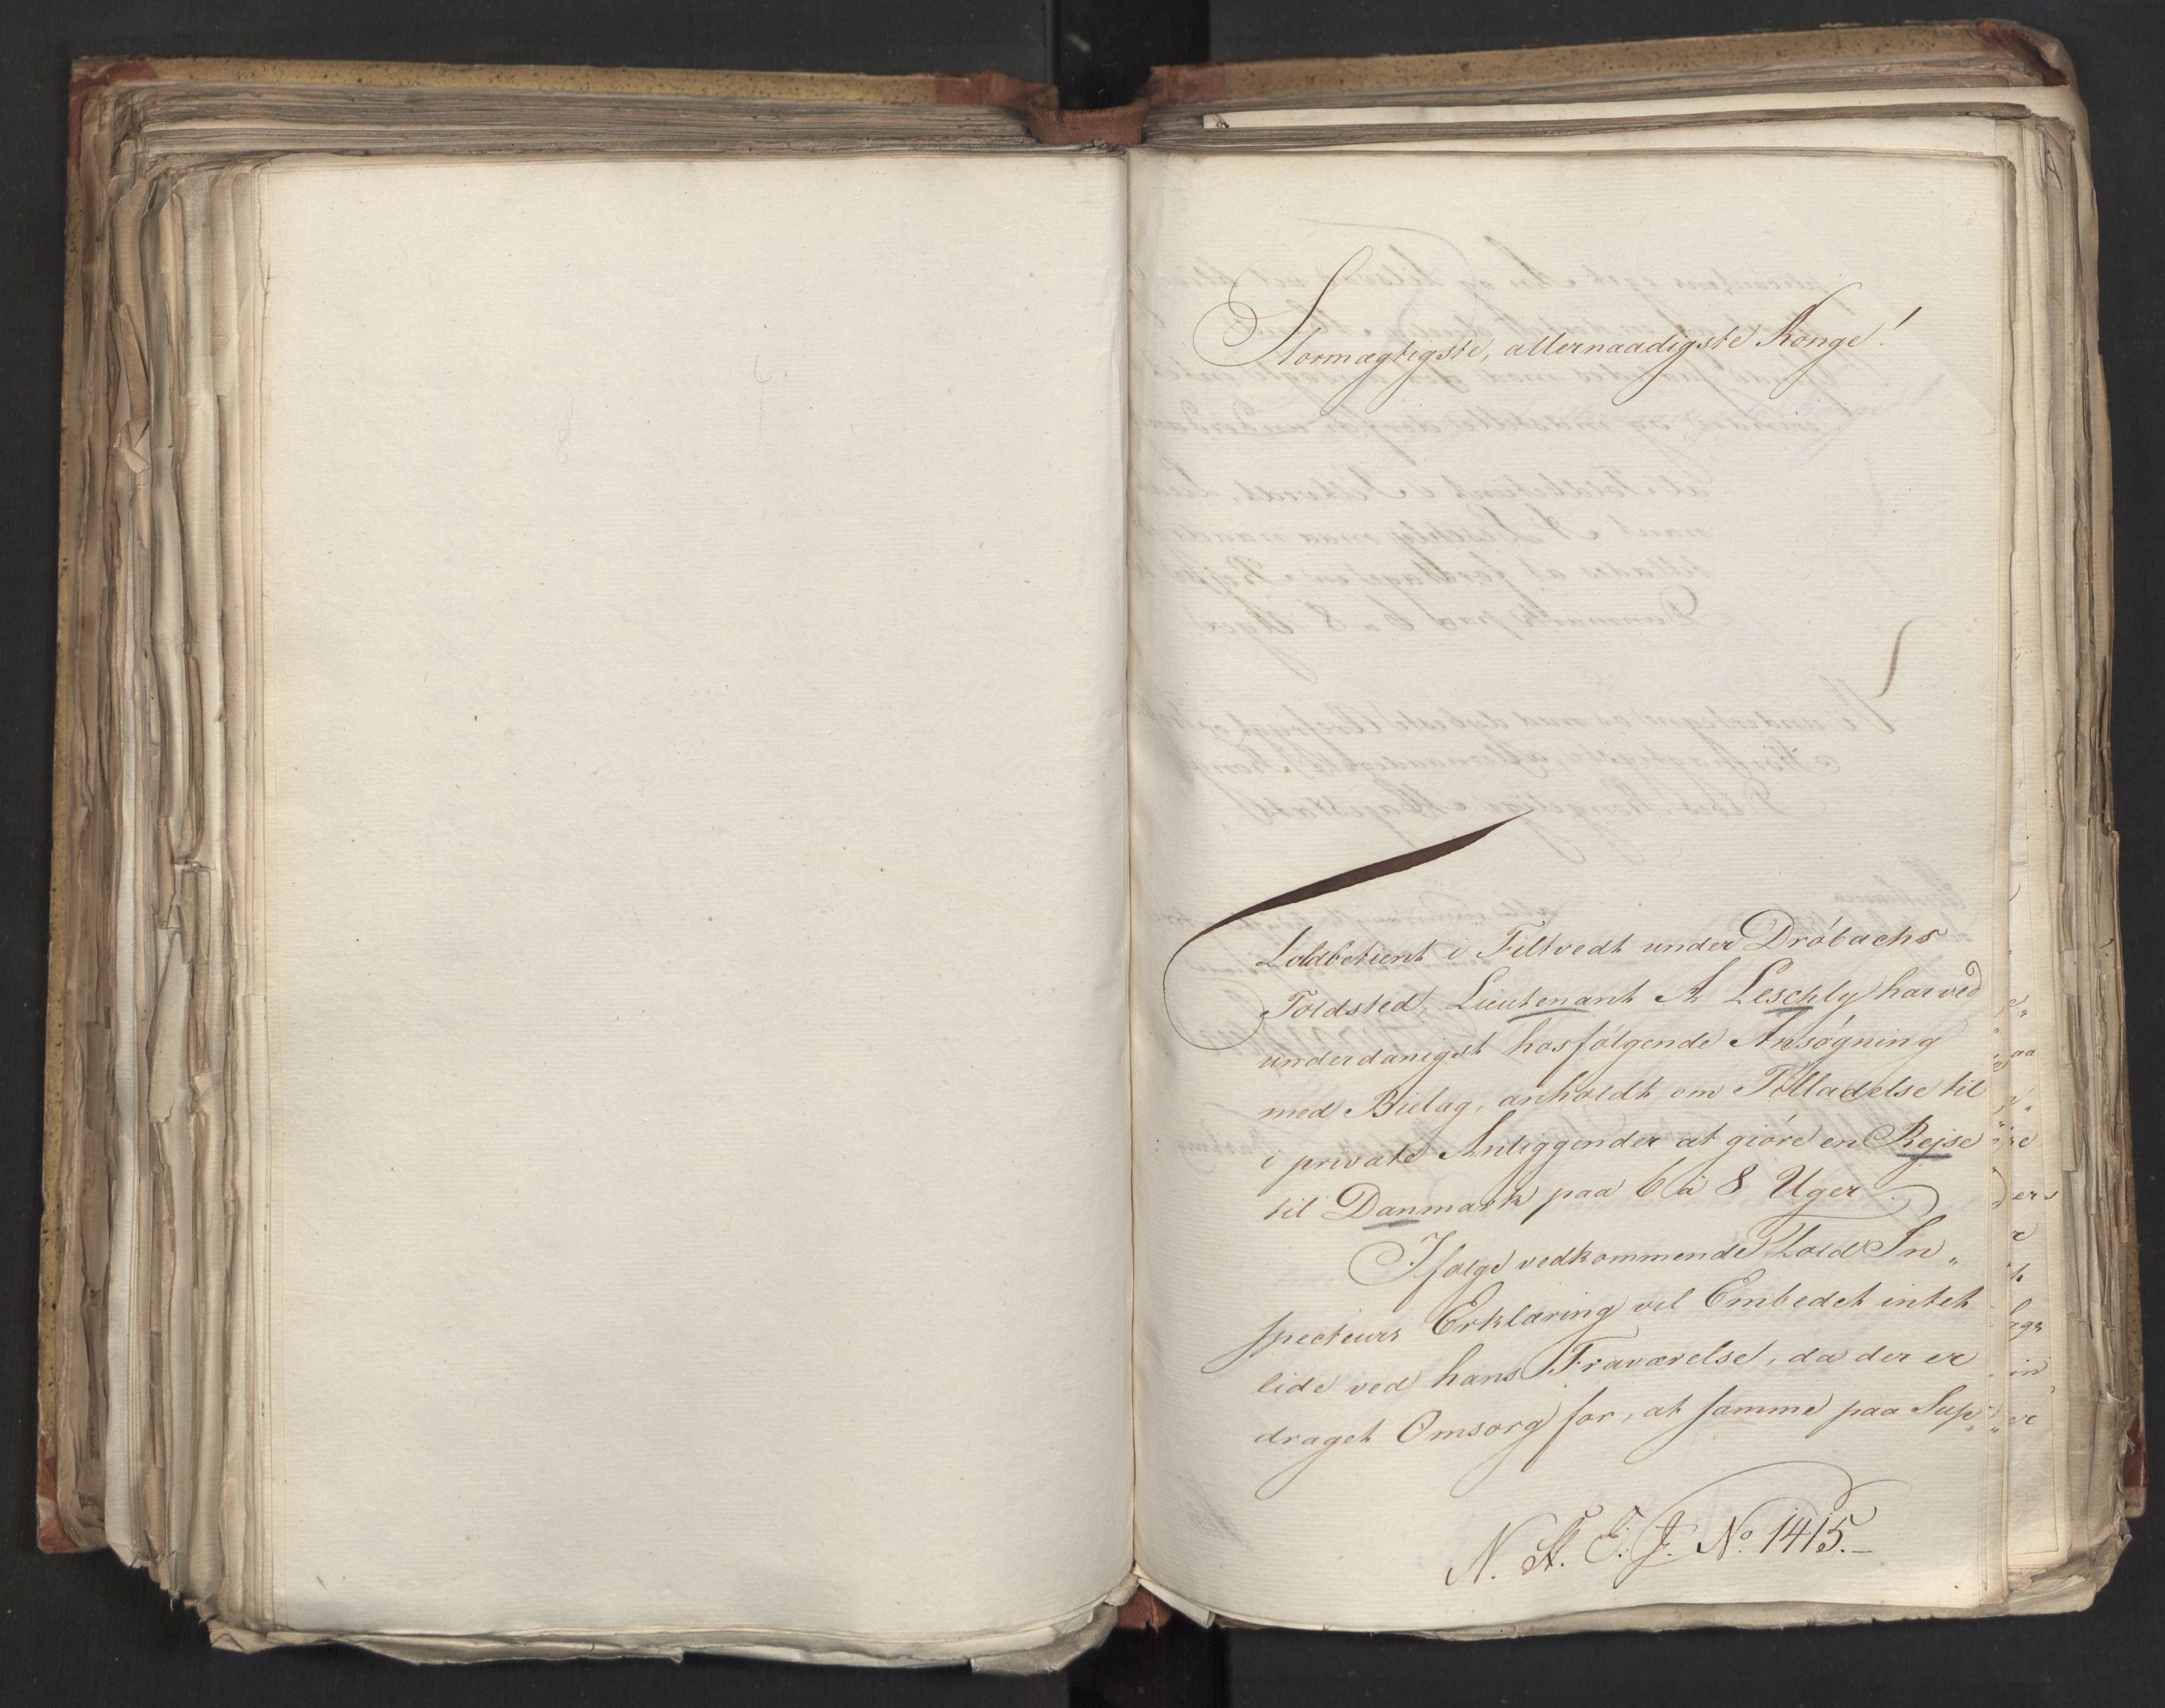 Stormægtigste, allernaadigste Konge!
Toldbetient i Filtvedt under Drøbachs
Toldsted, Lieutenant A Leschly har ved
underdanigst hosfølgende Ansøgning
med Bielag, anholdt om Tilladelse til
i private Anliggender at giøre en Rejse
til Danmark paa 6 à 8 Uger.
Ifølge vedkommende Told In„
specteurs Erklæring vil Embedet intet
lide ved hans Fraværelse, da der er
draget Omsorg for, at samme paa Sup„
N. St. E. J. No. 1415.